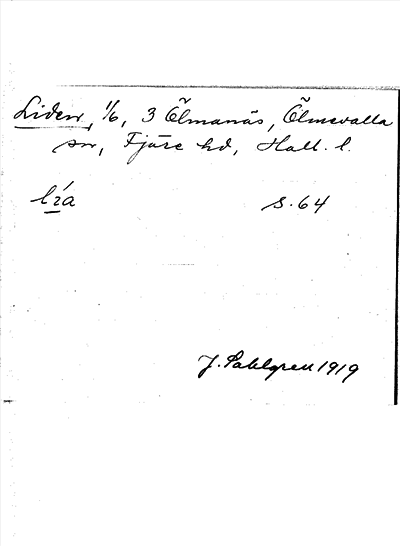 Liden, 1/6, 3 Ölmanäs, Ölmevalla
sn, Fjäre hd, Hall. l.
S. 64
J. Sahlgren 1919